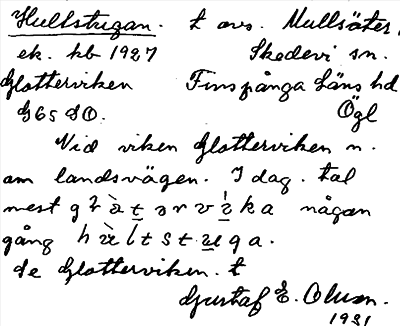 Hultstugan. t avs. Mullsäter,
ek. kb 1927 Skedevi sn.
Glotterviken Finspånga läns hd
G65 SO. Ögl
Vid viken Glotterviken n.
om landsvägen. I dag. tal
mest någon
gång
se Glotterviken. t
Gustaf E. Olson.
1931